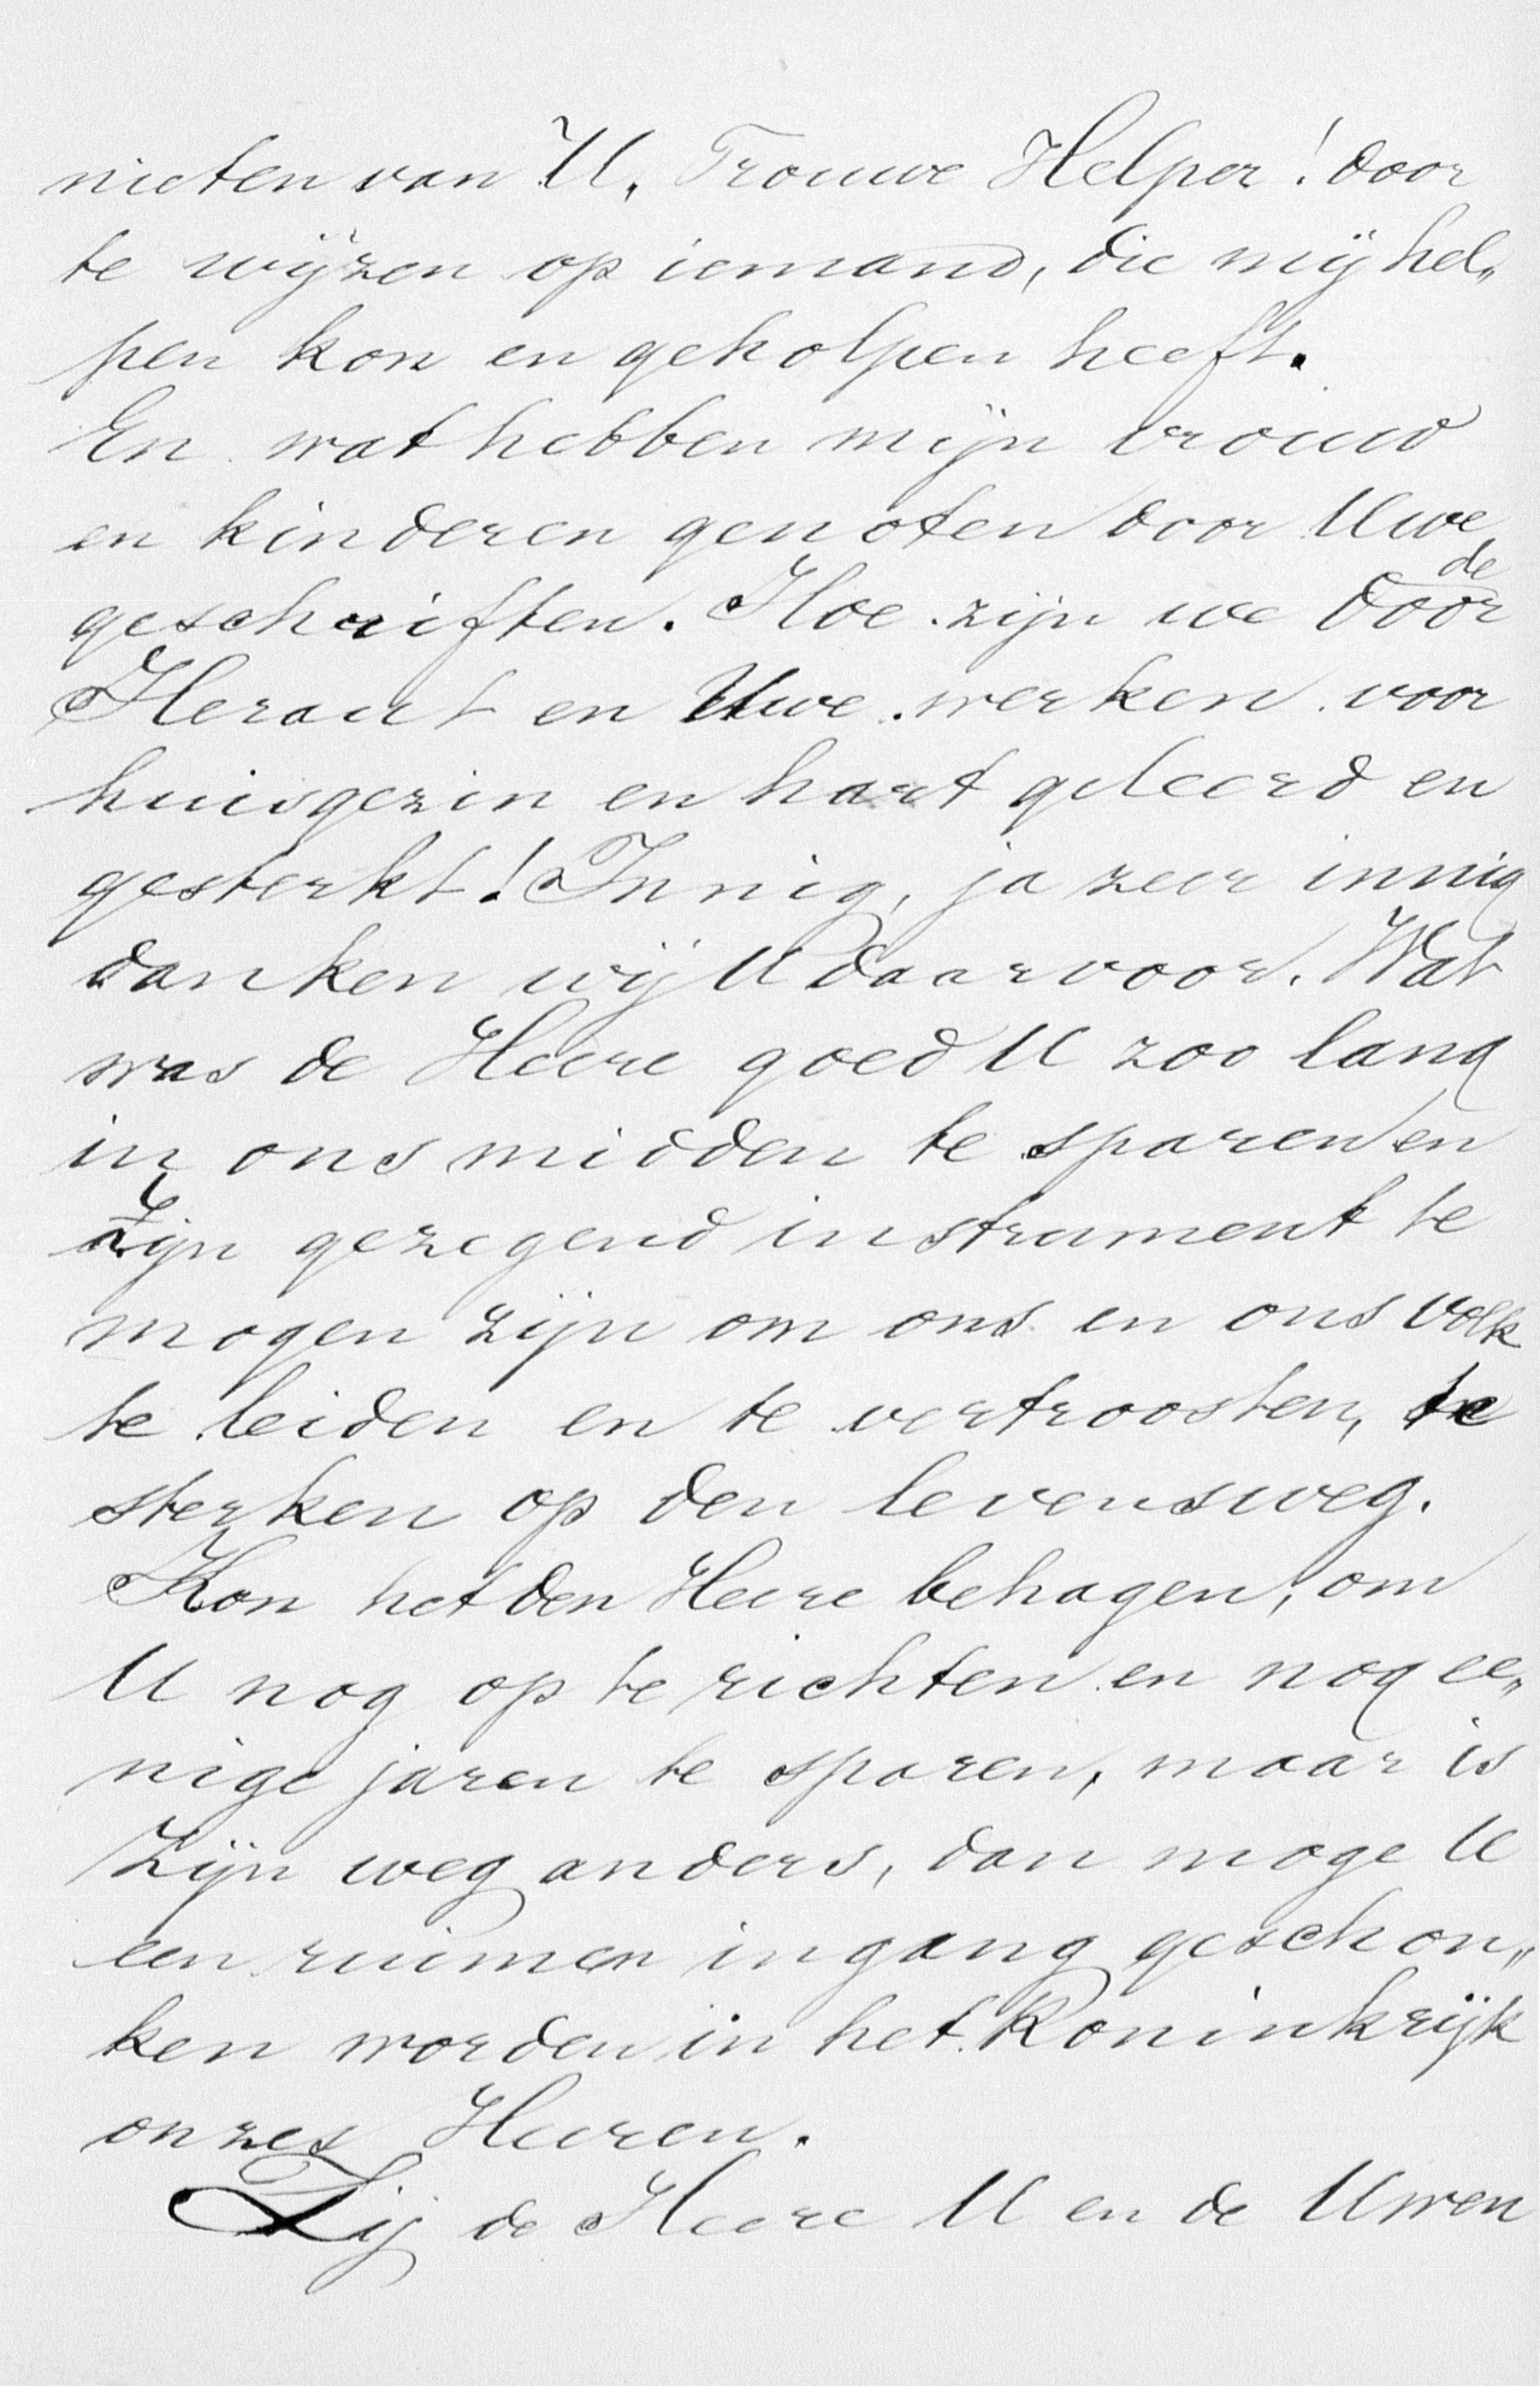 nieten van U, Trouwe Helper! door
te wijzen op iemand, die mij hel„
pen kon en geholpen heeft.
En wat hebben mijn vrouw
en kinderen genoten door Uwe
geschriften. Hoe zijn we door de
Heraut en Uwe werken voor
huisgezin en hart geleerd en
gesterkt! Innig, ja zeer innig
danken wij U daarvoor. Wat
was de Heere goed U zoo lang
in ons midden te sparen en
Zijn gezegend instrument te
mogen zijn om ons en ons volk
te leiden en te vertroosten, te
sterken op den levensweg.
Kon het den Heere behagen, om
U nog op te richten en nog ee„
nige jaren te sparen, maar is
Zijn weg anders, dan moge U
een ruimen ingang geschon„
ken worden in het Koninkrijk
onzes Heeren.
Zij de Heere U en de Uwen